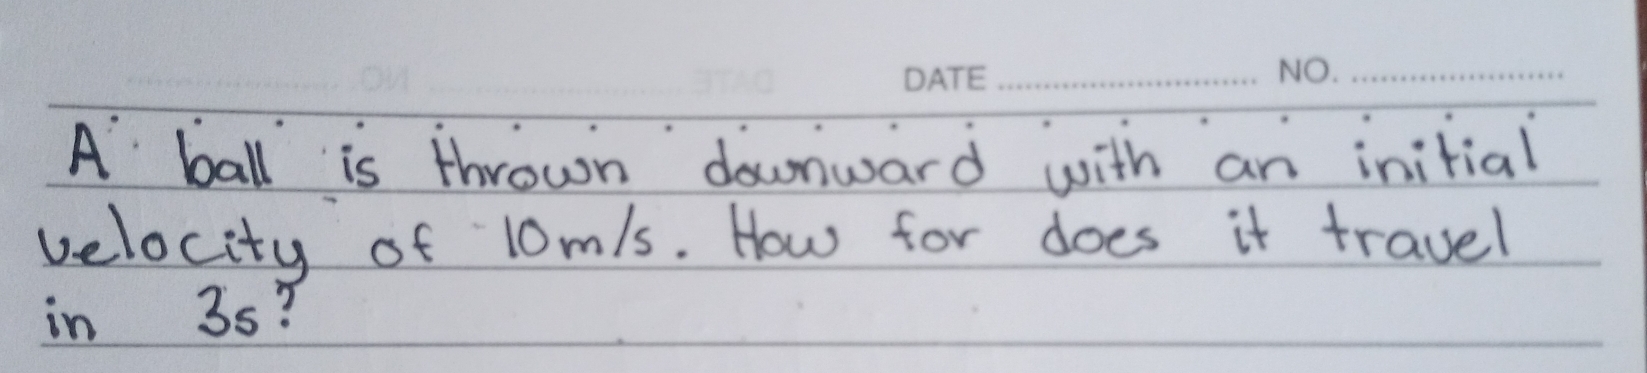 DATE ........................ NO. ....................
A ball is thrown downward with an initial
velocity of 10m/s. How for does it travel
in 3s?